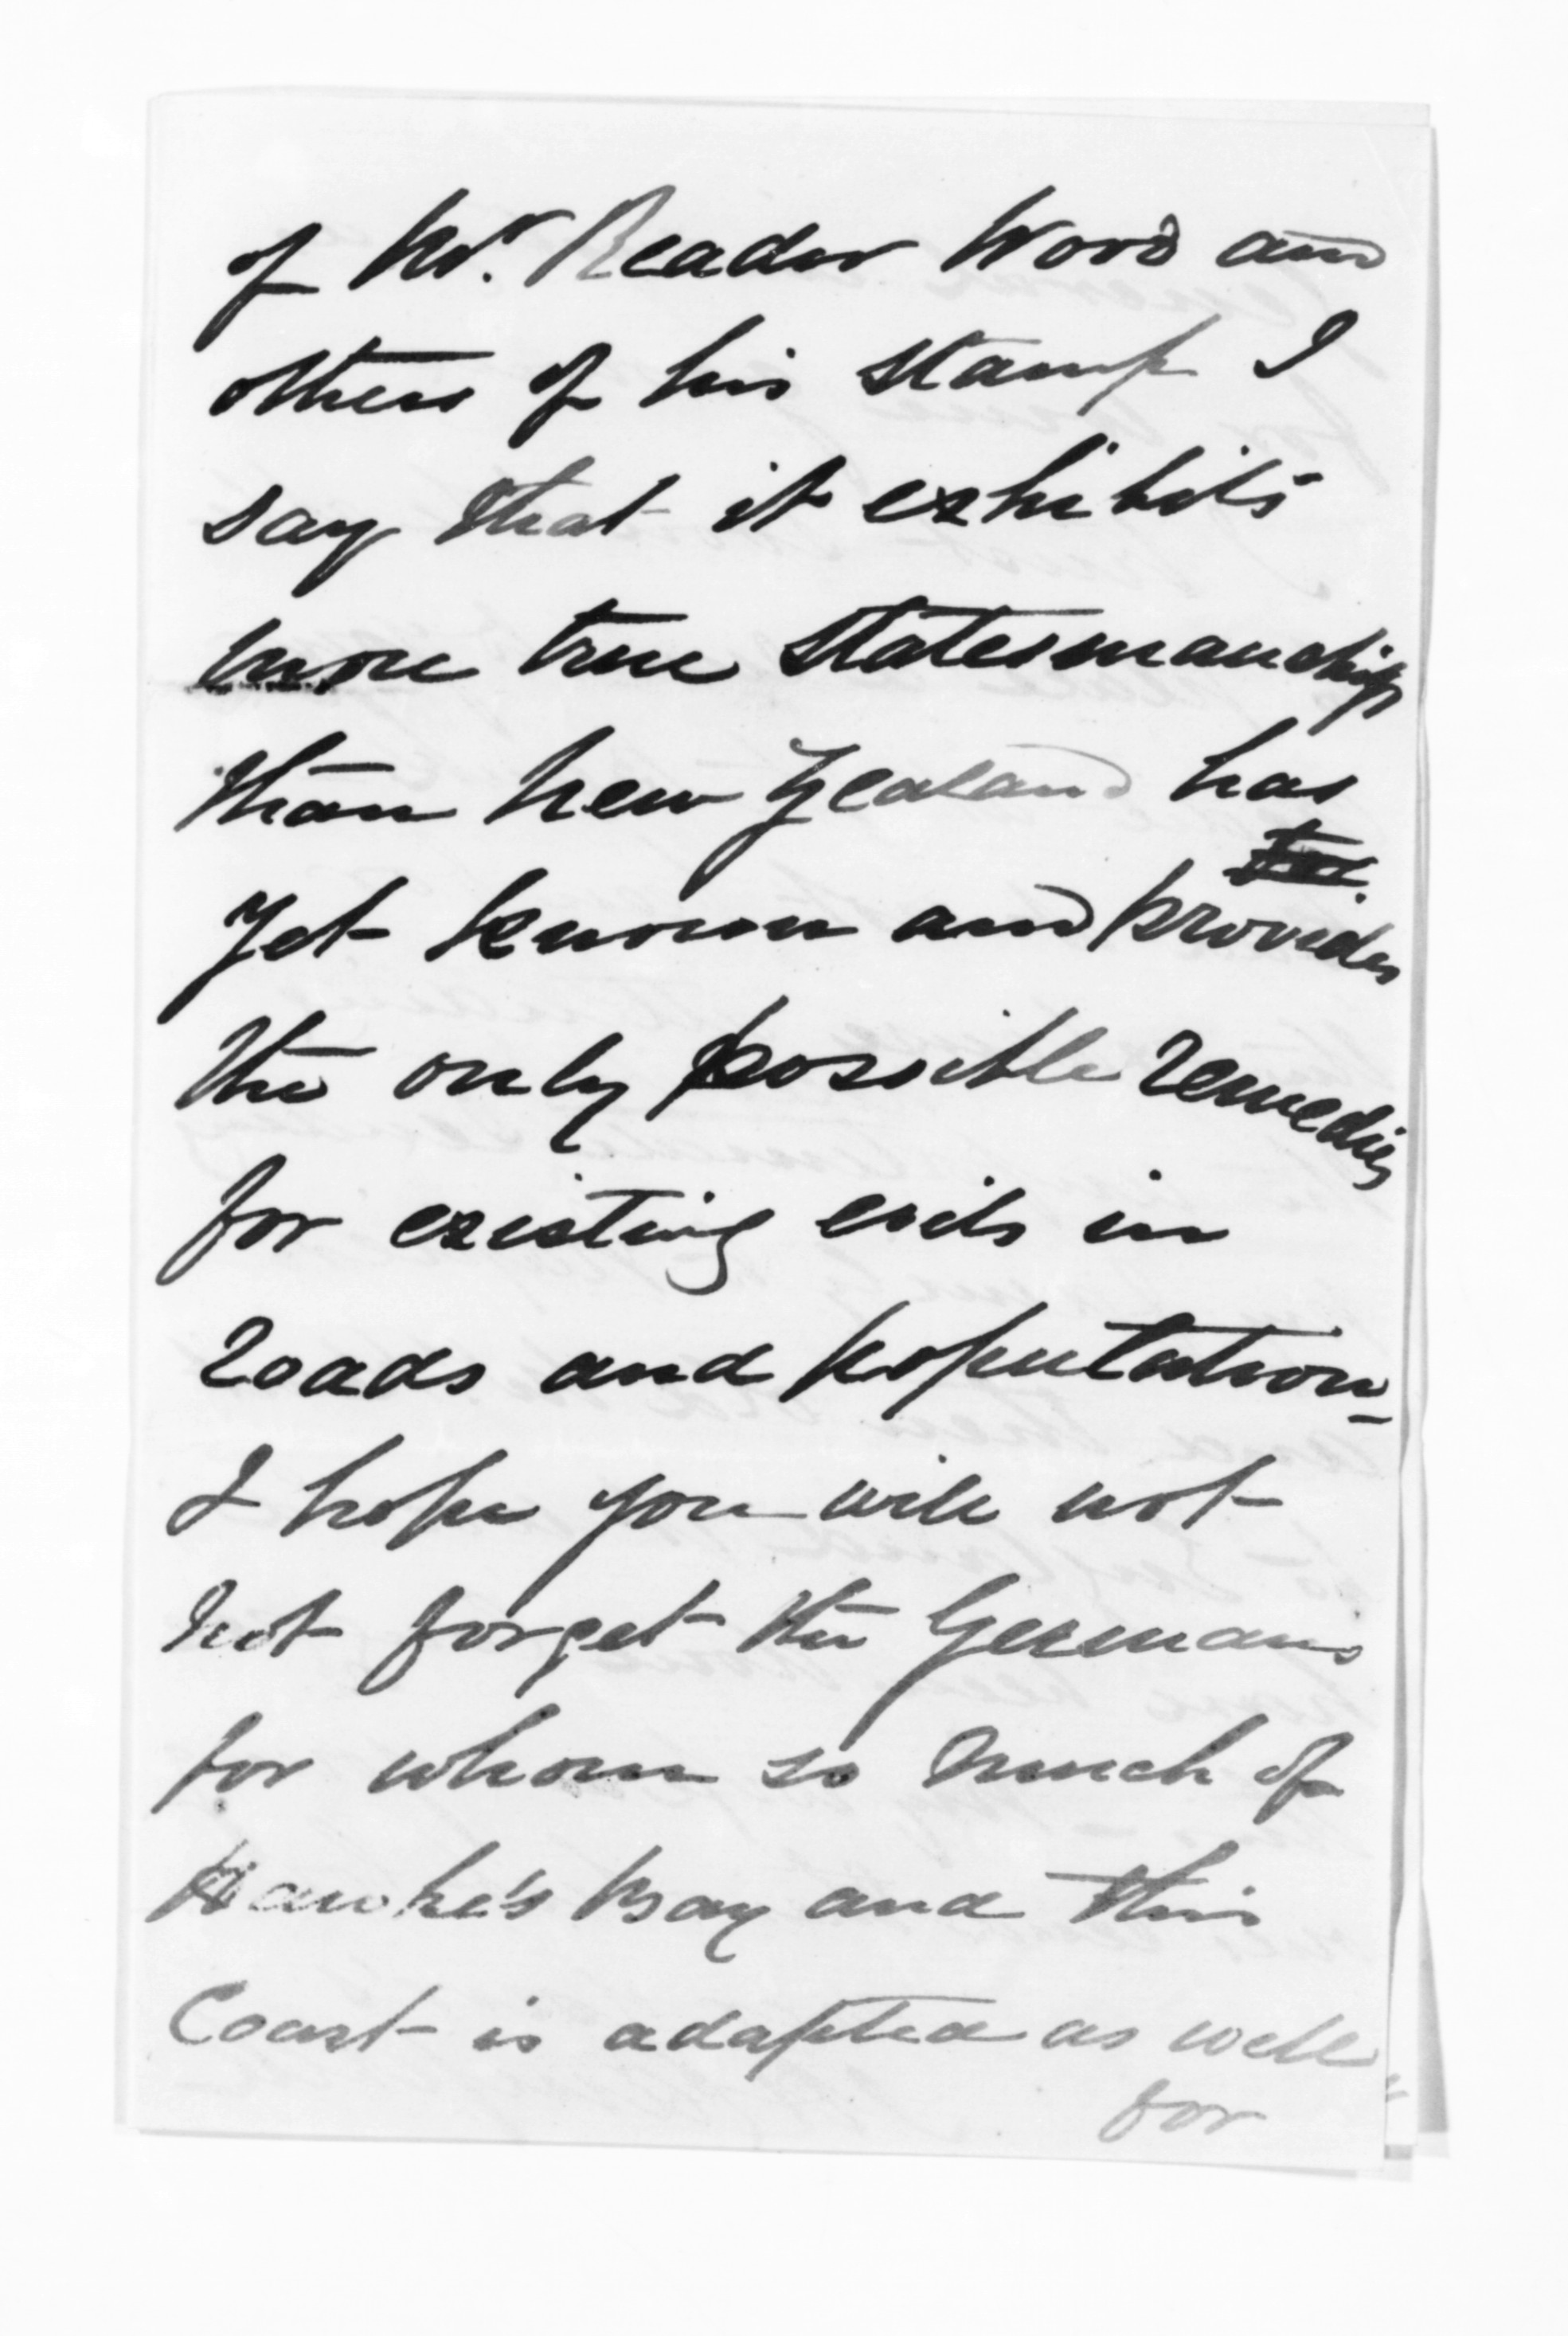 of Mr. Reader Wood and
others of his stamp I
say that it exhibits
more true statesmanship
than New Zealand has
yet known and provides
the only possible remedies
for existing evils in
roads and population_
I hope you will not
not forget the Germans
for whom so much of
Hawke's Bay and this
Coast is adapted as well
for